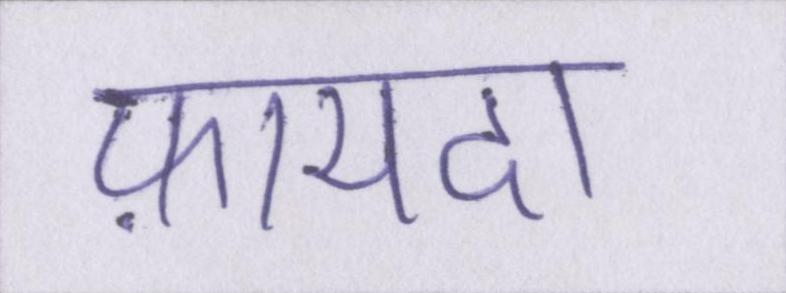 फ़ायदा